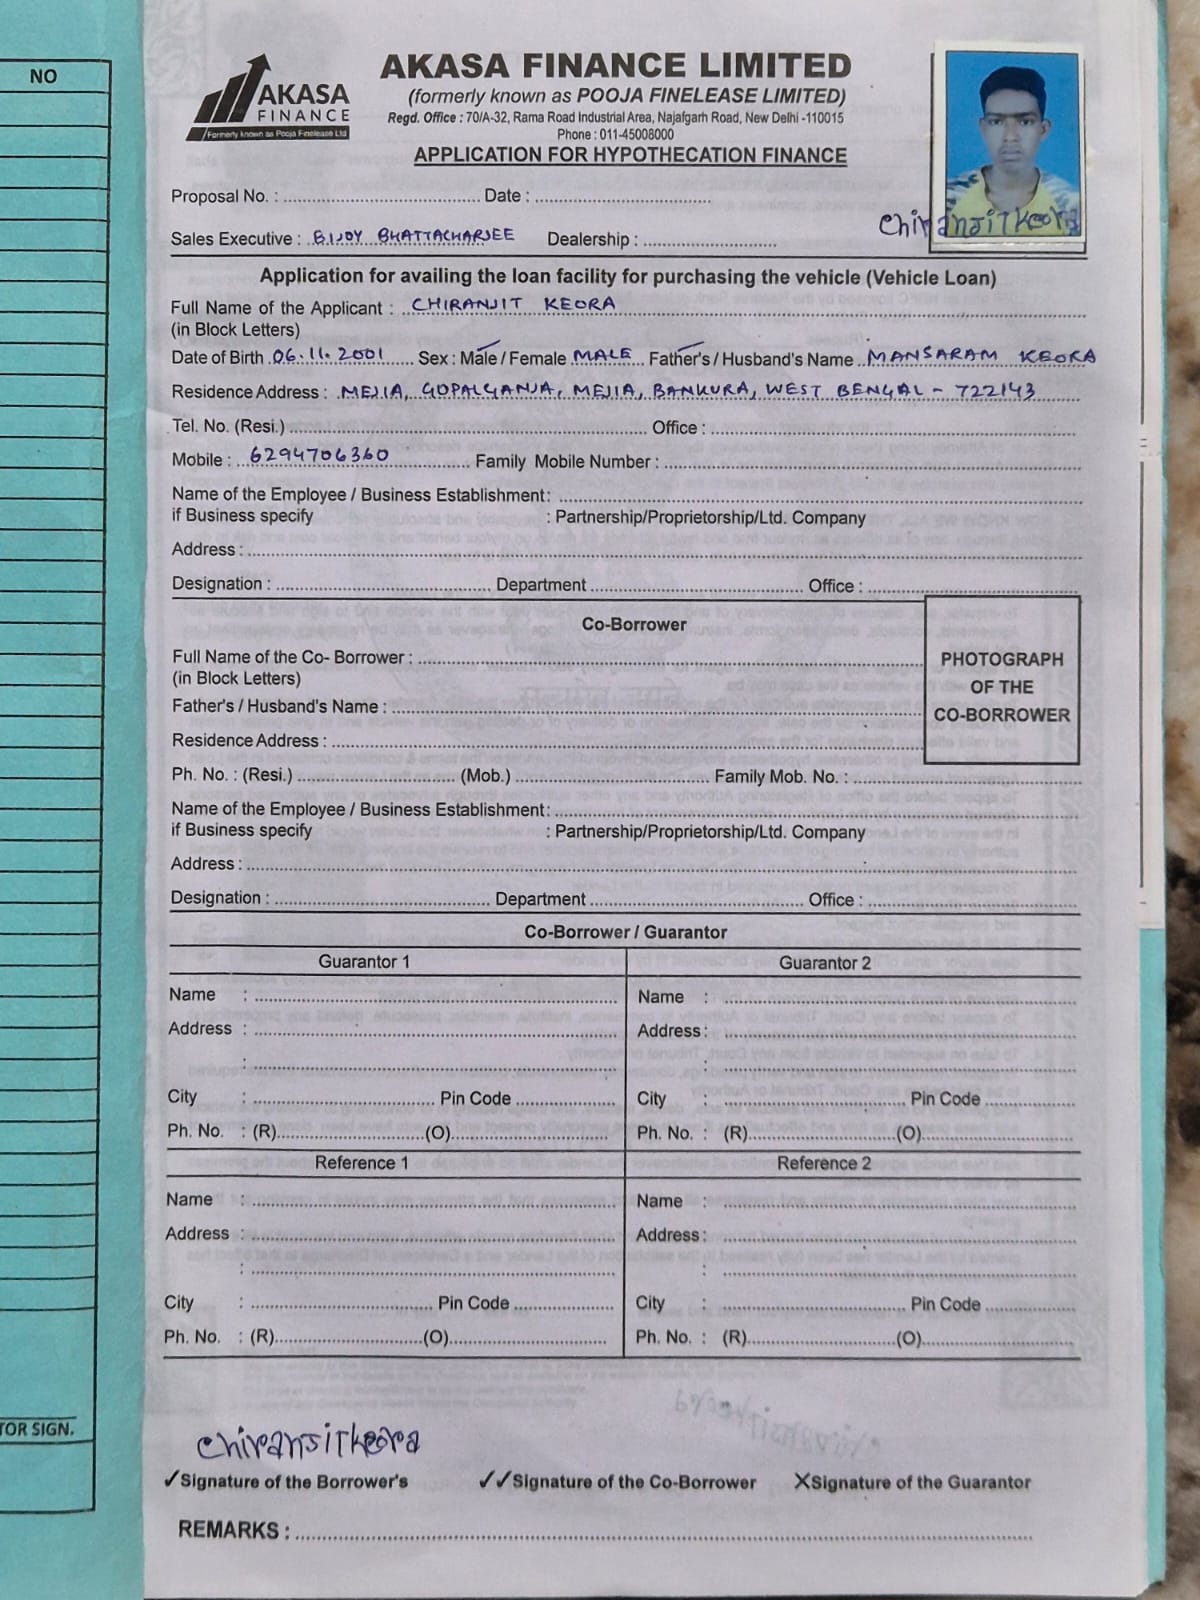 NO
AKASA
FINANCE
Formerly known as Pooja Finelease Ltd
AKASA FINANCE LIMITED
(formerly known as POOJA FINELEASE LIMITED)
Regd. Office : 70/A-32, Rama Road Industrial Area, Najafgarh Road, New Delhi -110015
Phone : 011-45008000
APPLICATION FOR HYPOTHECATION FINANCE
Proposal No. : Date :
Chiransit Keora
Sales Executive : BIJOY BHATTACHARJEE Dealership :
Application for availing the loan facility for purchasing the vehicle (Vehicle Loan)
Full Name of the Applicant : CHIRANJIT KEORA
(in Block Letters)
Date of Birth 06.11.2001 Sex : Male / Female MALE Father's / Husband's Name MANSARAM KEORA
Residence Address : MEJIA, GOPALGANJA, MEJIA, BANKURA, WEST BENGAL - 722143
Tel. No. (Resi.) Office :
Mobile : 6294706360 Family Mobile Number :
Name of the Employee / Business Establishment:
if Business specify : Partnership/Proprietorship/Ltd. Company
Address :
Designation : Department Office :
Co-Borrower
Full Name of the Co- Borrower :
(in Block Letters)
Father's / Husband's Name :
Residence Address :
PHOTOGRAPH
OF THE
CO-BORROWER
Ph. No. : (Resi.) (Mob.) Family Mob. No. :
Name of the Employee / Business Establishment:
if Business specify : Partnership/Proprietorship/Ltd. Company
Address :
Designation : Department Office :
Co-Borrower / Guarantor
Guarantor 1 Guarantor 2
Name : Name :
Address : Address :
: :
City : Pin Code City : Pin Code
Ph. No. : (R) (O) Ph. No. : (R) (O)
Reference 1 Reference 2
Name : Name :
Address : Address :
: :
City : Pin Code City : Pin Code
Ph. No. : (R) (O) Ph. No. : (R) (O)
TOR SIGN.
Chiransit keora
✓Signature of the Borrower's ✓✓Signature of the Co-Borrower XSignature of the Guarantor
REMARKS :